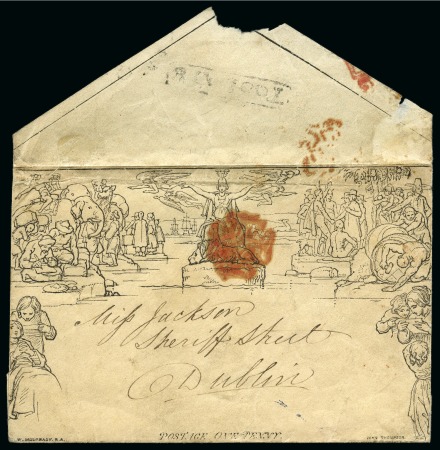 Miss Jackson
Sheriff Street
Dublin
POSTAGE ONE PENNY.
W. MULREADY, R.A.
JOHN THOMPSON